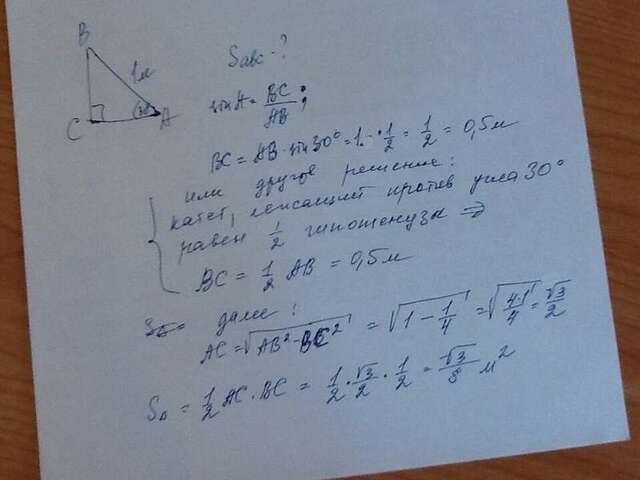 B
1м
C
30°
A
S_ABC - ?
sin A = BC/AB;
BC = AB · sin 30° = 1 · 1/2 = 1/2 = 0,5 м
или другое решение:
катет, лежащий против угла 30°
равен 1/2 гипотенузы ⇒
BC = 1/2 AB = 0,5 м
далее:
AC = √(AB² - BC²) = √(1 - 1/4) = = √3/2
S_Δ = 1/2 AC · BC = 1/2 · √3/2 · 1/2 = √3/8 м²